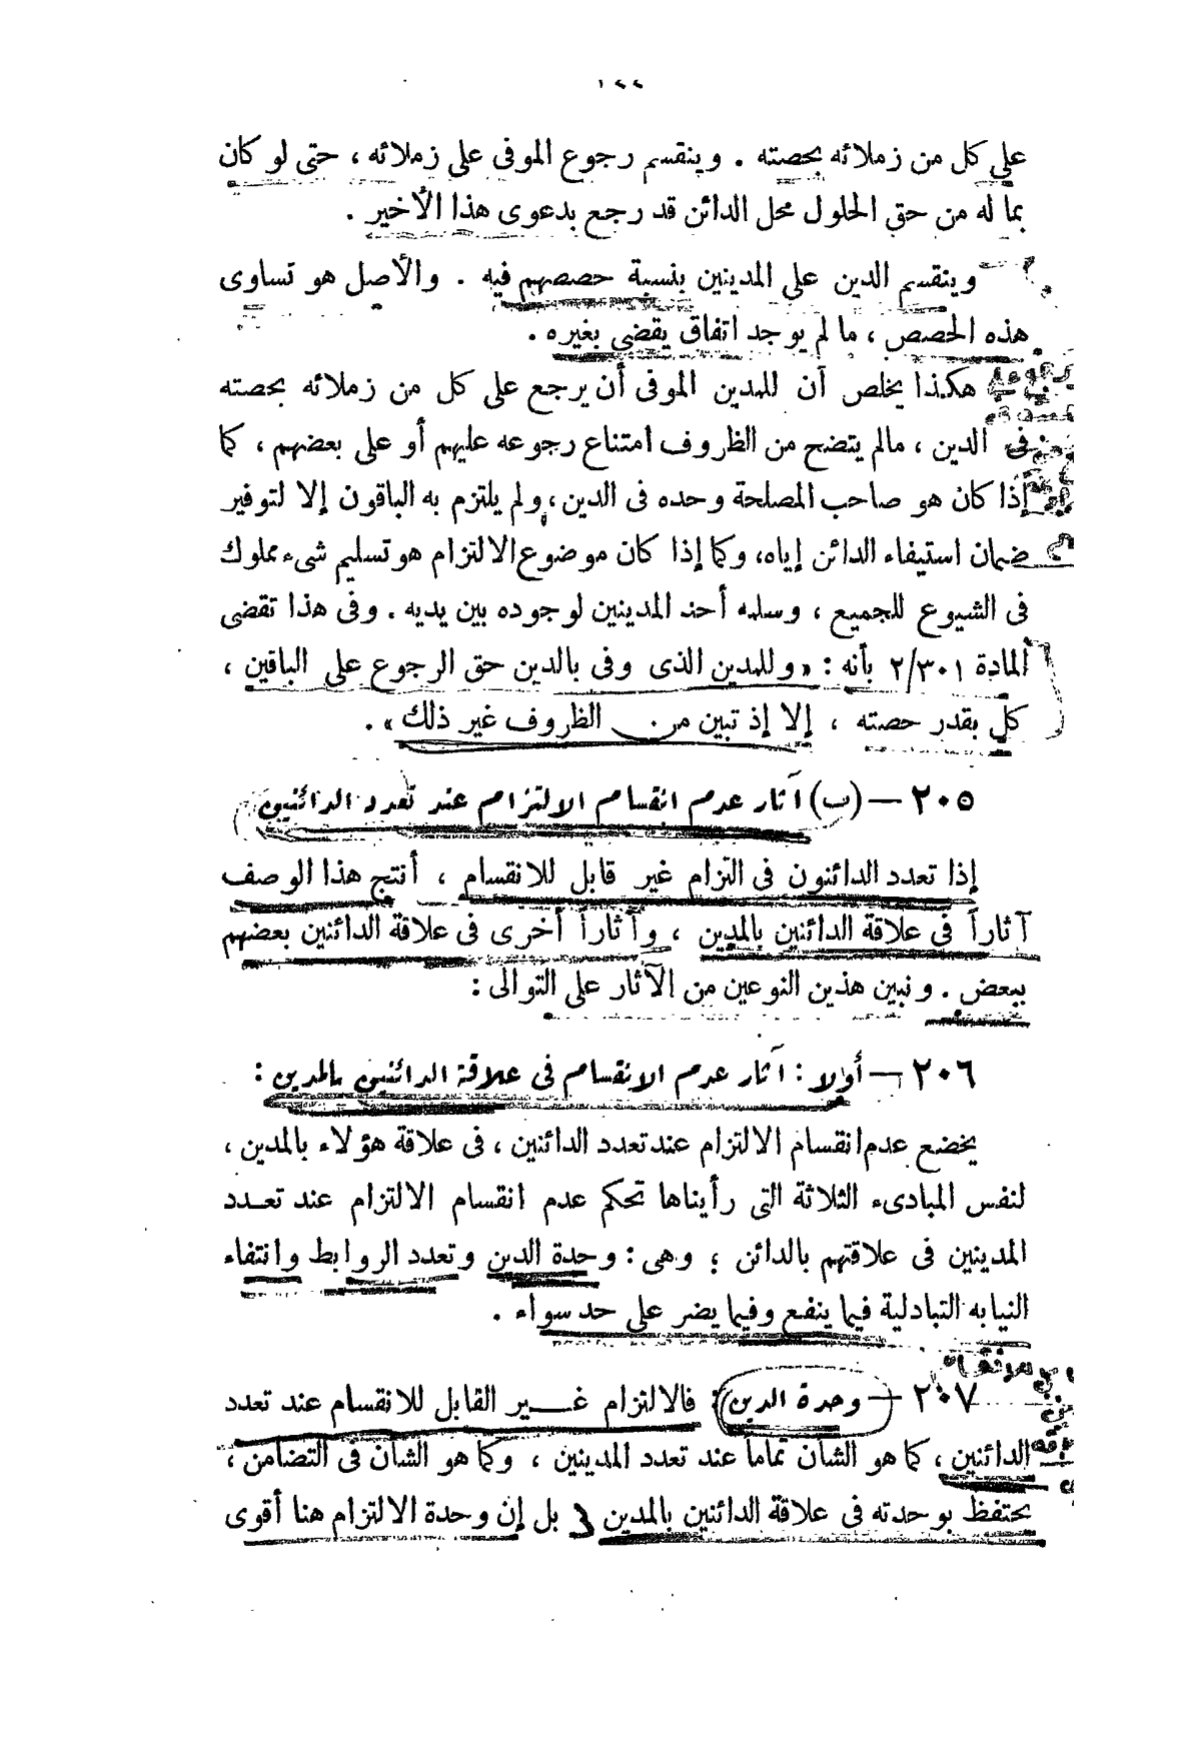 ١٢٢
على كل من زملائه بحصته . وينقسم رجوع الموفى على زملائه ، حتى لو كان
بما له من حق الحلول محل الدائن قد رجع بدعوى هذا الأخير .
وينقسم الدين على المدينين بنسبة حصصهم فيه . والأصل هو تساوى
هذه الحصص ، ما لم يوجد اتفاق يقضى بغيره .
هكذا يخلص أن للمدين الموفى أن يرجع على كل من زملائه بحصته
فى الدين ، مالم يتضح من الظروف امتناع رجوعه عليهم أو على بعضهم ، كما
إذا كان هو صاحب المصلحة وحده فى الدين ، ولم يلتزم به الباقون إلا لتوفير
ضمان استيفاء الدائن إياه، وكما إذا كان موضوع الالتزام هو تسليم شىء مملوك
فى الشيوع للجميع ، وسلمه أحد المدينين لوجوده بين يديه . وفى هذا تقضى
المادة ٢/٣٠١ بأنه : « وللمدين الذى وفى بالدين حق الرجوع على الباقين ،
كل بقدر حصته ، إلا إذ تبين من الظروف غير ذلك » .
٢٠٥ — (ب) آثار عدم انقسام الالتزام عند تعدد الدائنين
إذا تعدد الدائنون فى التزام غير قابل للانقسام ، أنتج هذا الوصف
آثاراً فى علاقة الدائنين بالمدين ، وآثاراً أخرى فى علاقة الدائنين بعضهم
ببعض . ونبين هذين النوعين من الآثار على التوالى :
٢٠٦ — أولا : آثار عدم الانقسام فى علاقة الدائنين بالمدين :
يخضع عدم انقسام الالتزام عند تعدد الدائنين ، فى علاقة هؤلاء بالمدين ،
لنفس المبادىء الثلاثة التى رأيناها تحكم عدم انقسام الالتزام عند تعدد
المدينين فى علاقتهم بالدائن ؛ وهى : وحدة الدين وتعدد الروابط وانتفاء
النيابه التبادلية فيما ينفع وفيما يضر على حد سواء .
٢٠٧ — وحدة الدين : فالالتزام غـــير القابل للانقسام عند تعدد
الدائنين ، كما هو الشأن تماماً عند تعدد المدينين ، وكما هو الشأن فى التضامن ،
يحتفظ بوحدته فى علاقة الدائنين بالمدين ، بل إن وحدة الالتزام هنا أقوى